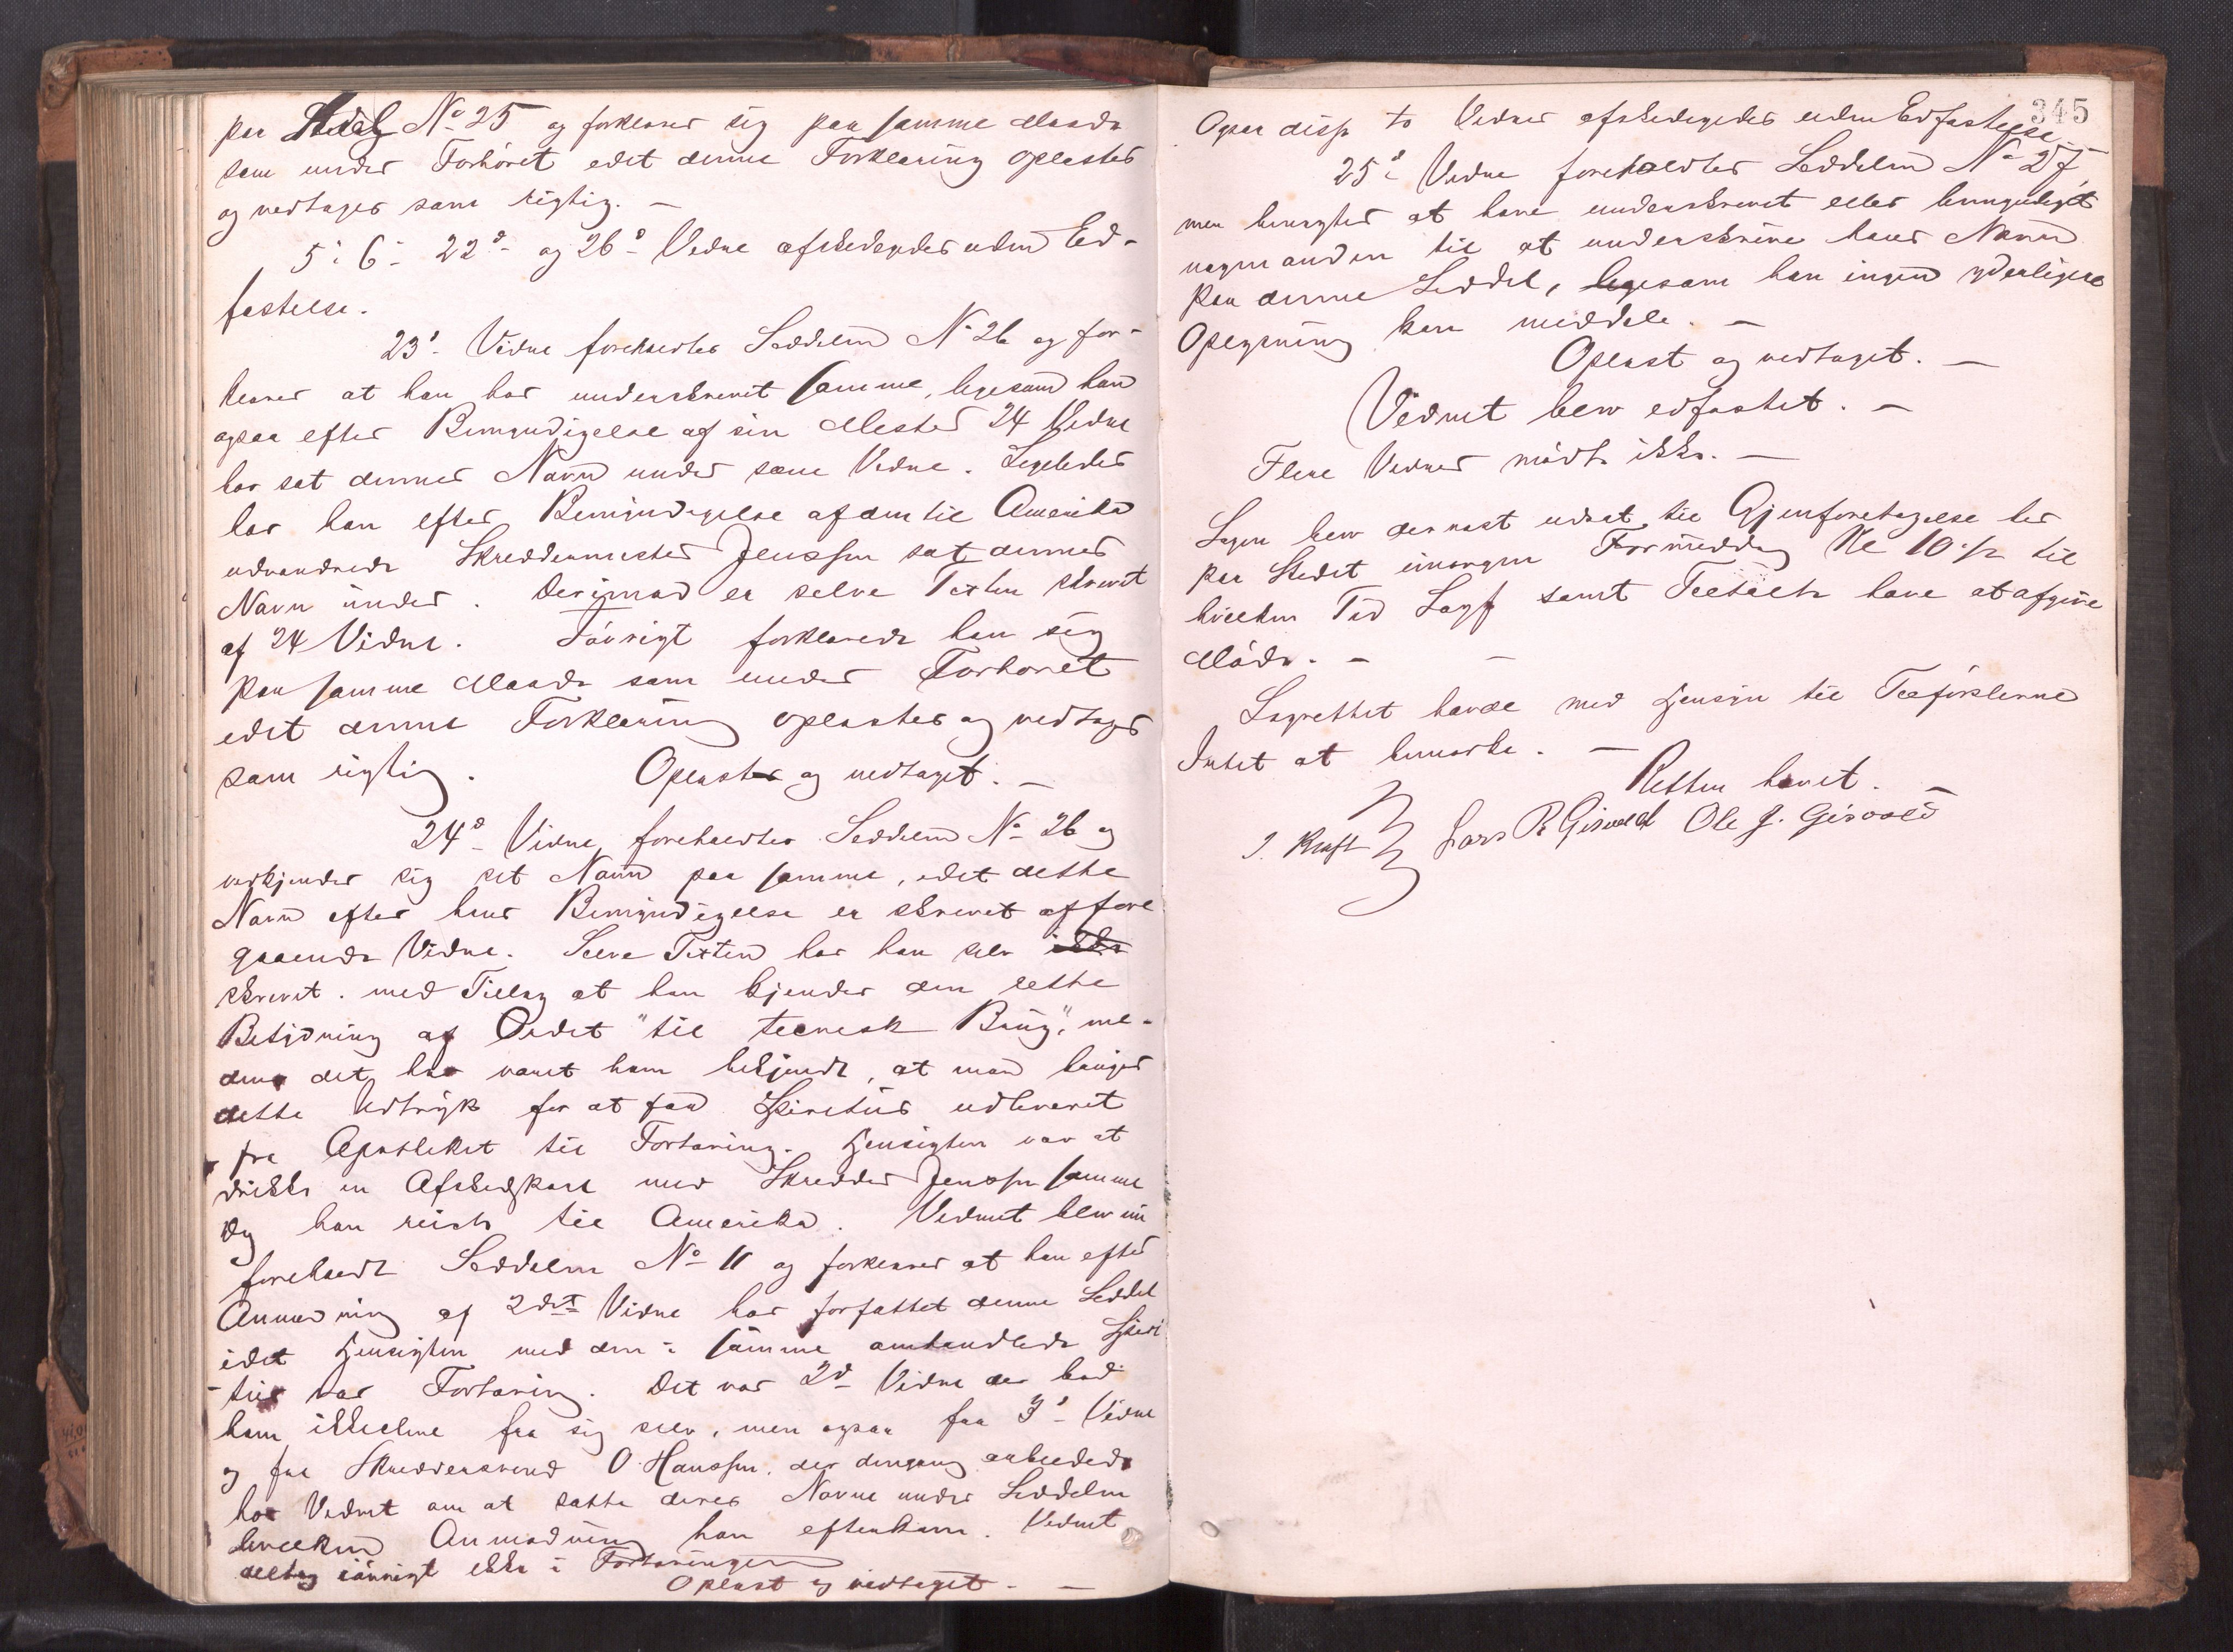 paa Seddel No 25 og forklarer sig paa samme Maade
som under Forhøret idet denne Forklaring oplæstes
og vedtages som rigtig. –
5te 6te 22de og 26de Vidne afskedigedes uden Ed-
fæstelse.
23de Vidne foreholdtes Seddelen No 26 og for-
klarer at han har underskrevet samme, ligesom han
ogsaa efter Bemyndigelse af sin Mester 24 Vidne
har sat dennes Navn under som Vidne. Ligeledes
har han efter Bemyndigelse af den til Amerika
udvandrede Skreddermester Jenssen sat dennes
Navn under. Derimod er selve Texten skrevet
af 24 Vidne. Iøvrigt forklarede han sig
paa samme Maade som under Forhøret
idet denne Forklaring oplæstes og vedtages
som rigtig. Oplæst og vedtaget. –
24de Vidne foreholdtes Seddelen No 26 og
vedkjender sig sit Navn paa samme, idet dette
Navn efter hans Bemyndigelse er skrevet af fore
gaaende Vidne. Selve Texten har han selv ikke
skrevet. med Tillæg at han kjender den rette
Betydning af Ordet "til teknisk Brug", me-
dens det har været ham bekjendt, at man bruger
dette Udtryk for at faa Spiritus udleveret
fra Apotheket til Fortæring. Hensigten var at
drikke en Afskedsskaal med Skredder Jenssen samme
Dag han reiste til Amerika. Vidnet blev nu
foreholdt Seddelen No 11 og forklarer at han efter
Anmodning af 2det Vidne har forfattet denne Seddel
idet Hensigten med den i samme omhandlede Spiri
-tus var Fortæring. Det var 2d Vidne der bad
ham ikke alene fra sig selv, men ogsaa fra 3die Vidne
og fra Skreddersvend O. Hanssen, der dengang arbeidede
hos Vidnet om at sætte deres Navne under Seddelen
hvilken Anmodning han efterkom. Vidnet
deltog iøvrigt ikke i Fortæringen
Oplæst og vedtaget. –
345
Ogsaa disse to Vidner afskedigedes uden Edfæstelse
25de Vidne foreholdtes Seddelen No 27,
men benegter at have underskrevet eller bemyndiget
nogen anden til at underskrive hans Navn
paa denne Seddel, ligesom han ingen yderligere
Oplysning kan meddele. –
Oplæst og vedtaget. –
Vidnet blev edfæstet. –
Flere Vidner mødte ikke. –
Sagen blev dernæst udsat til Gjenforetagelse her
paa Stedet imorgen Formiddag Kl 10 1/2 til
hvilken Tid Sagf samt Tiltalte have at afgive
Møde. –
Lagrettet havde med Hensyn til Tilførslerne
Intet at bemærke. –
Retten hævet. –
I. Kraft Lars P. Gisvold Ole J. Gisvold